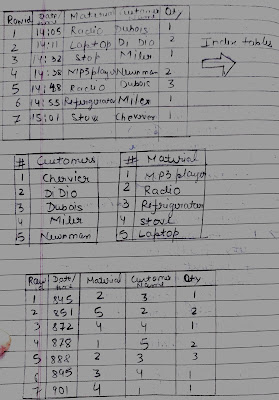 Rowid Date/time Material Customer Qty
1 14:05 Radio Dubois 1
2 14:11 Laptop Di Dio 2
3 14:32 Stop Miler 1
4 14:38 MP3 player Newman 2
5 14:48 Radio Dubois 3
6 14:55 Refrigurator Miler 1
7 15:01 Stove Chevrier 1
Index tables
# Customers
1 Chevier
2 DiDio
3 Dubois
4 Miler
5 Newman
# Material
1 MP3 player
2 Radio
3 Refrigurator
4 Stove
5 Laptop
Row Date/time Material Customer Qty
1 845 2 3 1
2 851 5 2 2
3 872 4 4 1
4 878 1 5 2
5 888 2 3 3
6 895 3 4 1
7 901 4 1 1